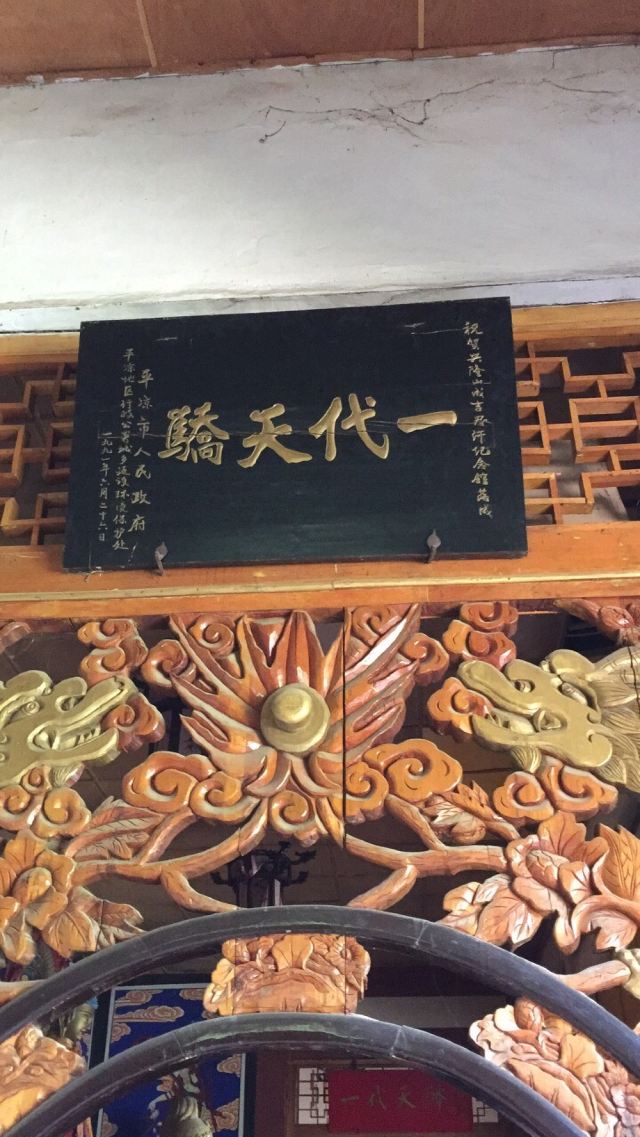 祝贺兴隆山成吉思汗纪念馆落成
一代天驕
平凉市人民政府
平凉地区行政公署城乡建设环境保护处
一九九一年六月二十六日
一代天